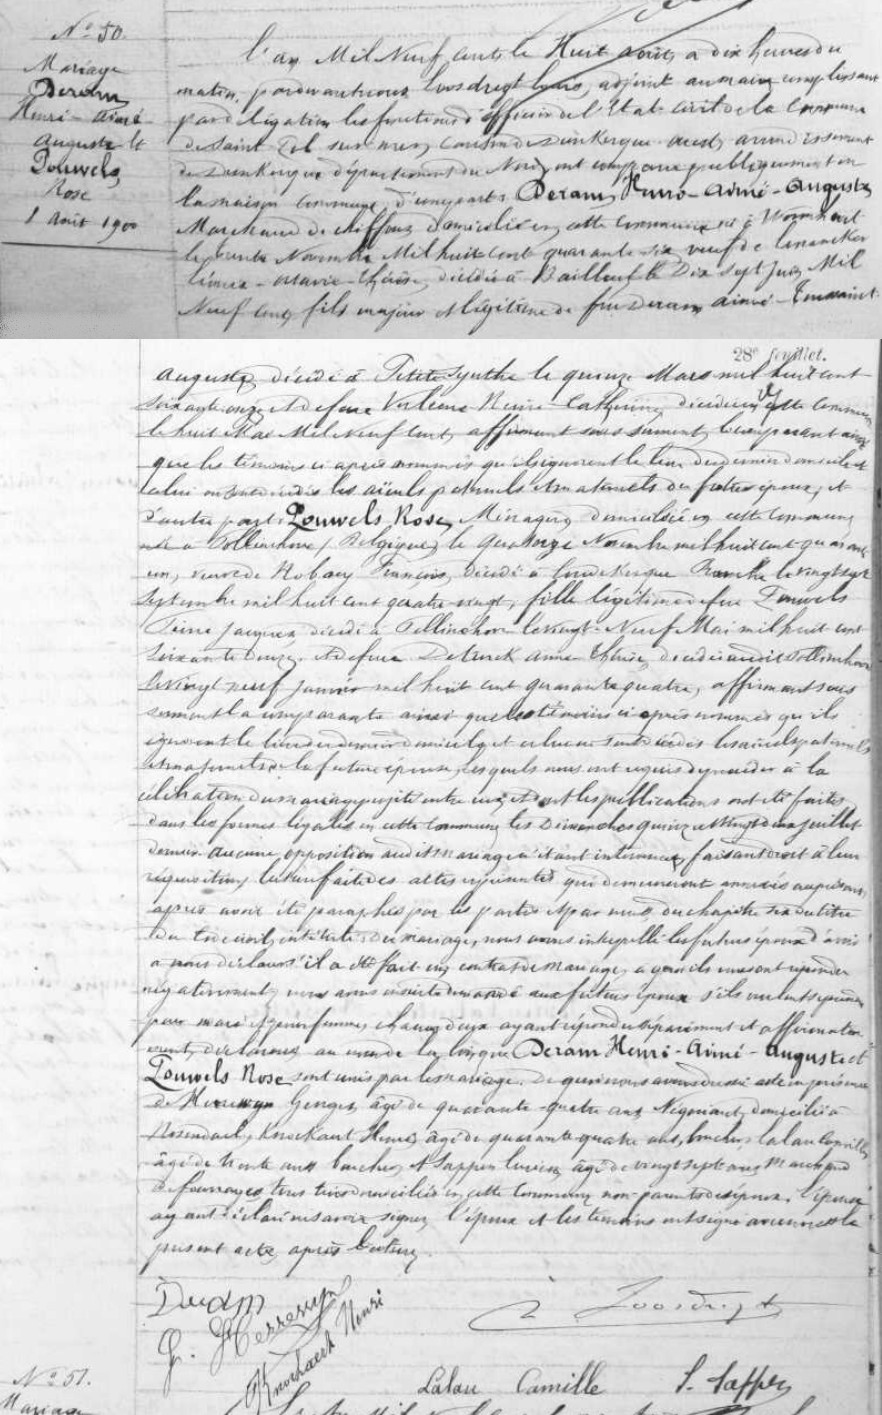 N° 50.
Mariage
Deram
Henri-Aimé-
Auguste et
Pouwels
Rose
8 Août 1900
L'an Mil Neuf Cent, le Huit Août, à dix heures du
matin, pardevant nous Loosdregt Louis, adjoint au maire remplissant
par délégation les fonctions d'officier de l'Etat-civil de la Commune
de Saint Pol sur mer, canton de Dunkerque ouest, arrondissement
de Dunkerque, département du Nord, ont comparu publiquement en
la maison commune, d'une part: Deram, Henri-Aimé-Auguste,
Marchand de chiffons, domicilié en cette commune, né à Wormhout
le trente Novembre Mil huit cent quarante six, veuf de
décédée à Bailleul le Dix sept Juin Mil
Neuf Cent, fils majeur et légitime de feu Deram, Aimé-Toussaint-
28e feuillet.
Auguste, décédé à Petite Synthe le quinze Mars mil huit cent
soixante onze, et de feue Reine-Catherine, décédée en cette commune
le huit Mai Mil Neuf Cent, affirmant sous serment, le comparant ainsi
que les témoins ci après nommés qu'ils ignorent le lieu du dernier domicile et
celui où sont décédés les aïeuls paternels et maternels du futur époux, et
d'autre part: Pouwels Rose, Ménagère, domiciliée en cette commune,
née à Pollinchove (Belgique) le quatorze Novembre mil huit cent quarante
un, veuve de François, décédé à Coudekerque Branche le vingt sept
Septembre mil huit cent quatre-vingt, fille légitime de feu Pouwels
Pierre Jacques décédé à Pollinchove le vingt-Neuf Mai mil huit cent
soixante douze, et de feue Anne Thérèse, décédée audit Pollinchove
le vingt neuf Janvier mil huit cent quarante quatre, affirmant sous
serment la comparante ainsi que les témoins ci après nommés qu'ils
ignorent le lieu du dernier domicile et celui où sont décédés les aïeuls paternels
et maternels de la future épouse, lesquels nous ont requis de procéder à la
célébration du mariage projeté entre eux, et dont les publications ont été faites
dans les formes légales en cette commune, les Dimanches quinze et Vingt deux Juillet
dernier. Aucune opposition audit mariage n'étant intervenue, faisant droit à leur
réquisition, lecture faite des actes représentés qui demeureront annexés au présent
après avoir été paraphés par les parties et par nous, du chapitre six du titre
du code civil, intitulé: du mariage, nous avons interpellé les futurs époux d'avoir
à nous déclarer s'il a été fait un contrat de mariage, à quoi ils nous ont répondu
négativement, nous avons ensuite demandé aux futurs époux s'ils veulent se prendre
pour mari et pour femme, chacun d'eux ayant répondu séparément et affirmative-
ment, déclarons au nom de la loi que Deram Henri-Aimé-Auguste et
Pouwels Rose sont unis par le mariage. De quoi nous avons dressé acte en présence
de Georges, âgé de quarante-quatre ans, Négociant, domicilié à
Rosendael, Knockaert Henri, âgé de quarante quatre ans, boucher, Lalau Camille
âgé de trente ans boucher, et Sapper Lucien, âgé de vingt sept ans, Marchand
de fourrages, tous trois domiciliés en cette commune, non parents des époux. L'épouse
ayant déclaré ne savoir signer, l'époux et les témoins ont signé avec nous le
présent acte, après lecture.
Deram
Loosdregt
Knockaert Henri
Lalau Camille
N° 51.
Mariage